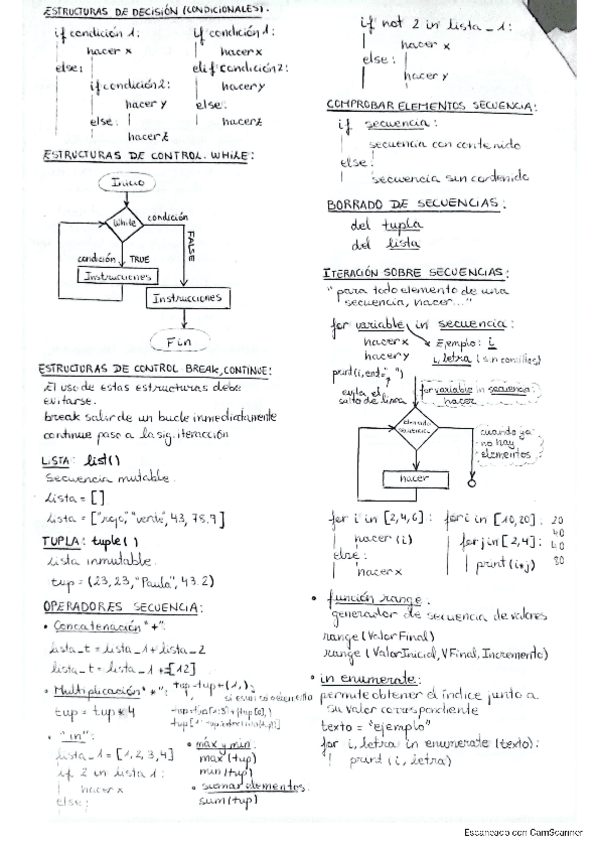 ESTRUCTURAS DE DECISIÓN (CONDICIONALES):
if condición 1:
hacer x
else:
if condición 2:
hacer y
else:
hacer z
if condición 1:
hacer x
elif condición 2:
hacer y
else:
hacer z
ESTRUCTURAS DE CONTROL. WHILE:
Inicio
While
condición
condición TRUE
FALSE
Instrucciones
Instrucciones
Fin
ESTRUCTURAS DE CONTROL BREAK, CONTINUE:
El uso de estas estructuras debe
evitarse.
break salir de un bucle inmediatamente
continue paso a la sig. iteracción
LISTA: list()
Secuencia mutable.
Lista = []
Lista = ["rojo", "verde", 43, 78.9]
TUPLA: tuple()
Lista inmutable.
tup = (23, 23, "Paula", 43.2)
OPERADORES SECUENCIA:
• Concatenación "+":
lista_t = lista_1 + lista_2
lista_t = lista_1 += [12]
• Multiplicación "*":
tup = tup * 4
tup = tup + (1,):
si es un solo elemento
• "in":
lista_1 = [1, 2, 3, 4]
if 2 in lista 1:
hacer x
else:
• máx y min:
max(tup)
min(tup)
• sumar elementos:
sum(tup)
if not 2 in lista_1:
hacer x
else:
hacer y
COMPROBAR ELEMENTOS SECUENCIA:
if secuencia:
secuencia con contenido
else:
secuencia sin contenido
BORRADO DE SECUENCIAS:
del tupla
del lista
ITERACIÓN SOBRE SECUENCIAS:
"para todo elemento de una
secuencia, hacer..."
for variable in secuencia:
hacer x
hacer y
Ejemplo: i
i, letra (sin comillas)
print(i, end=" ")
evita el
salto de línea
for variable in secuencia:
hacer
cuando ya
no hay
elementos
hacer
for i in [2, 4, 6]:
hacer (i)
else:
hacer x
for i in [10, 20]:
for j in [2, 4]:
print(i*j)
20
40
40
80
• función range.
generador de secuencia de valores
range (Valor Final)
range (ValorInicial, VFinal, Incremento)
• in enumerate:
permite obtener el índice junto a
su valor correspondiente
texto = "ejemplo"
for i, letra in enumerate (texto):
print (i, letra)
Escaneado con CamScanner